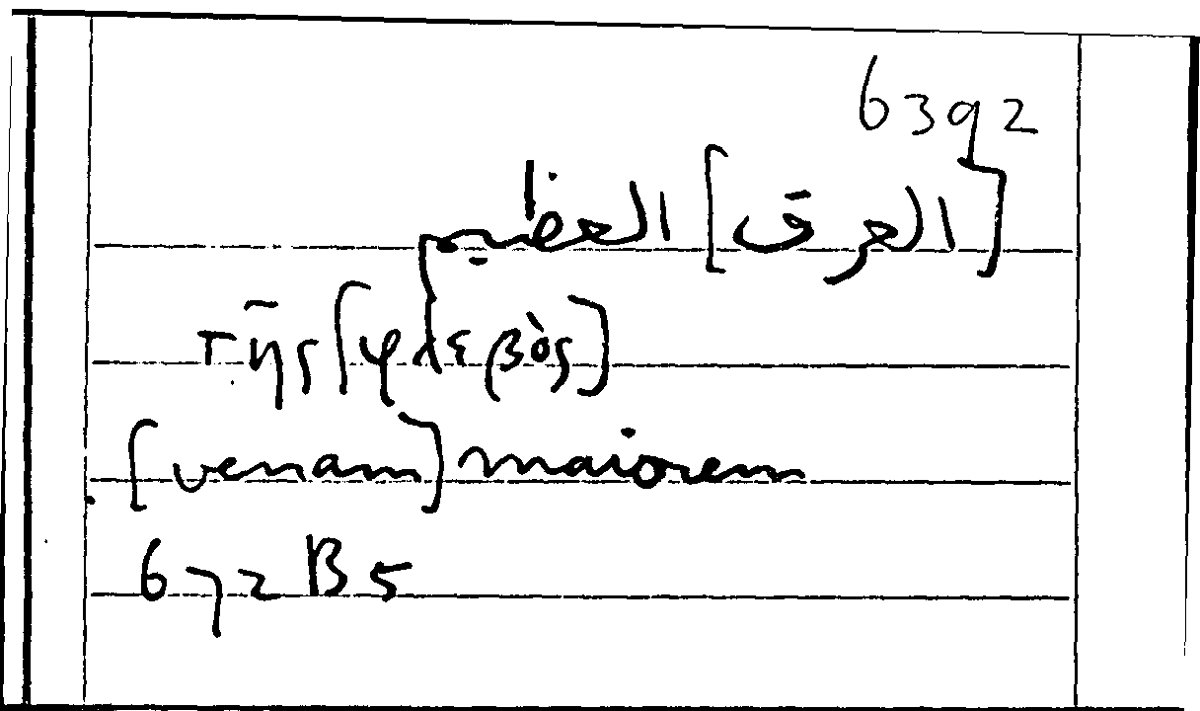 6392
[العرق] العظيم
τῆς [φλεβὸς]
[venam] maiorem
672 B 5